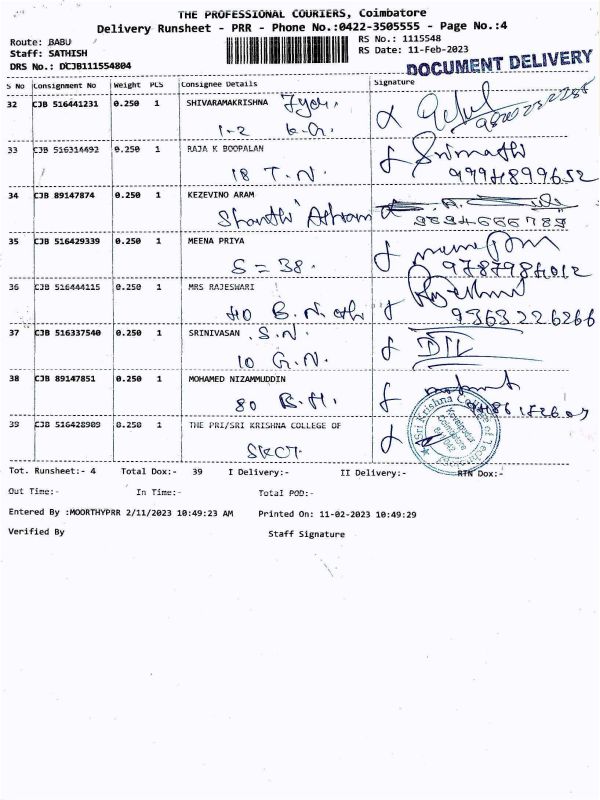 THE PROFESSIONAL COURIERS, Coimbatore
Delivery Runsheet - PRR - Phone No.:0422-3505555 - Page No.:4
Route: BABU
RS No.: 1115548
Staff: SATHISH
RS Date: 11-Feb-2023
DRS No.: DCJB111554804
DOCUMENT DELIVERY
S No Consignment No Weight PCS Consignee Details Signature
32 CJB 516441231 0.250 1 SHIVARAMAKRISHNA
1-2
33 CJB 516314492 0.250 1 RAJA K BOOPALAN Srimathi
18 T.N. 9994899652
34 CJB 89147874 0.250 1 KEZEVINO ARAM
Shanthi Ashram
35 CJB 516429339 0.250 1 MEENA PRIYA
S = 38.
36 CJB 516444115 0.250 1 MRS RAJESWARI
40 B.N. 9363226266
37 CJB 516337540 0.250 1 SRINIVASAN .S.N.
10 G.N.
38 CJB 89147851 0.250 1 MOHAMED NIZAMMUDDIN
80 B.H.
39 CJB 516428909 0.250 1 THE PRI/SRI KRISHNA COLLEGE OF
SKCT
Sri Krishna College of
Coimbatore
Tot. Runsheet:- 4 Total Dox:- 39 I Delivery:- II Delivery:- RTN Dox:-
Out Time:- In Time:- Total POD:-
Entered By :MOORTHYPRR 2/11/2023 10:49:23 AM Printed On: 11-02-2023 10:49:29
Verified By Staff Signature